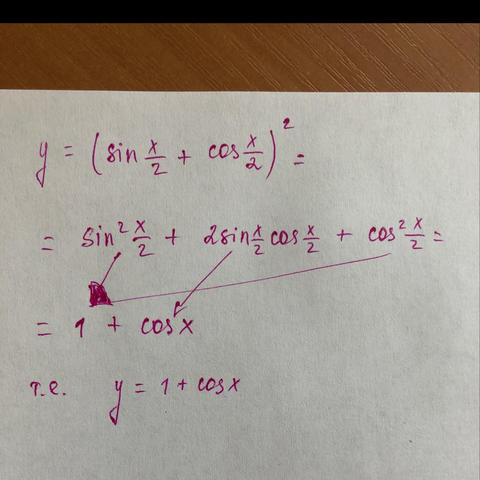 y = (sin x/2 + cos x/2)² =
= sin² x/2 + 2sin x/2 cos x/2 + cos² x/2 =
= 1 + cos x
т.е. y = 1 + cos x